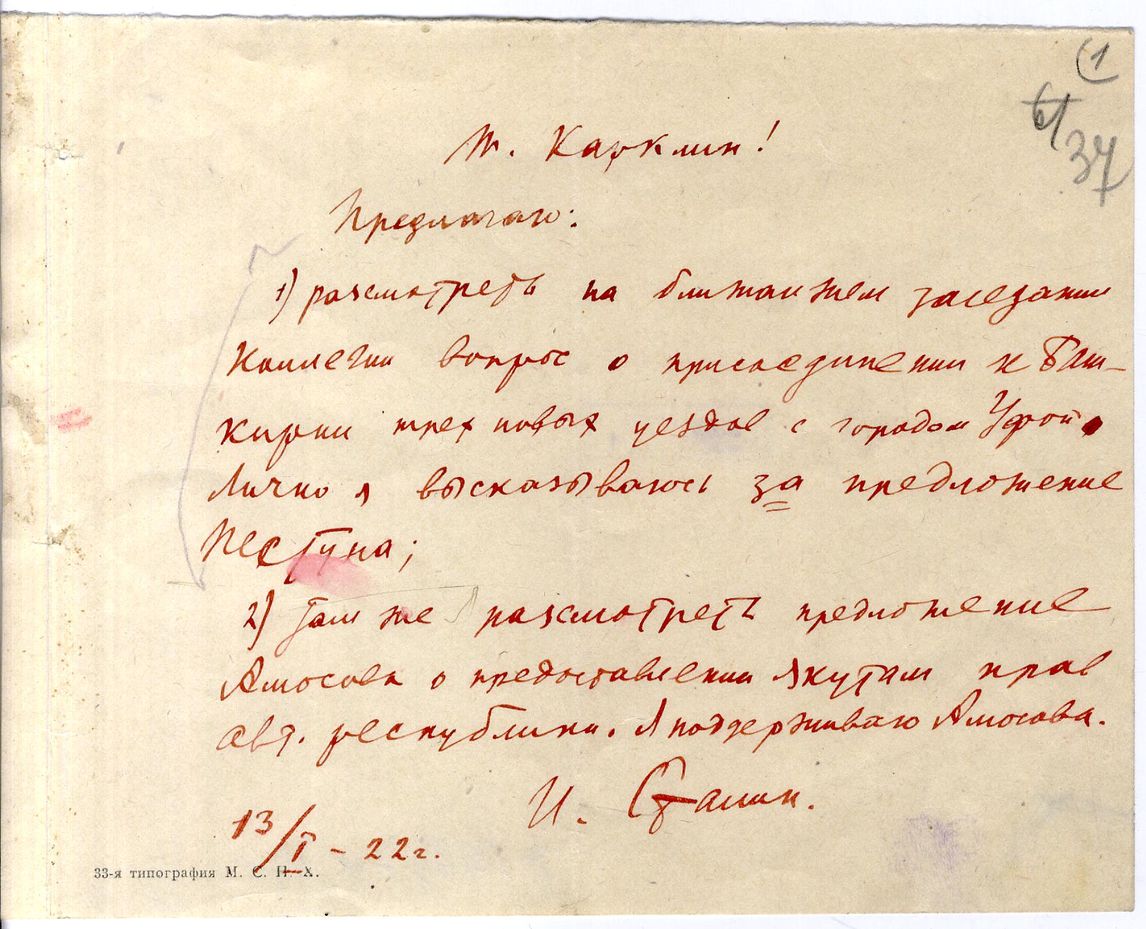 (1
61
37
Т. Карклин!
Предлагаю:
1) рассмотреть на ближайшем заседании
коллегии вопрос о присоединении к Баш-
кирии трех новых уездов с городом Уфой.
Лично я высказываюсь за предложение
Пестуна;
2) там же рассмотреть предложение
Амосова о предоставлении якутам прав
авт. республики. Я поддерживаю Амосова.
И. Сталин.
13/I – 22 г.
33-я типография М. С. Н. Х.